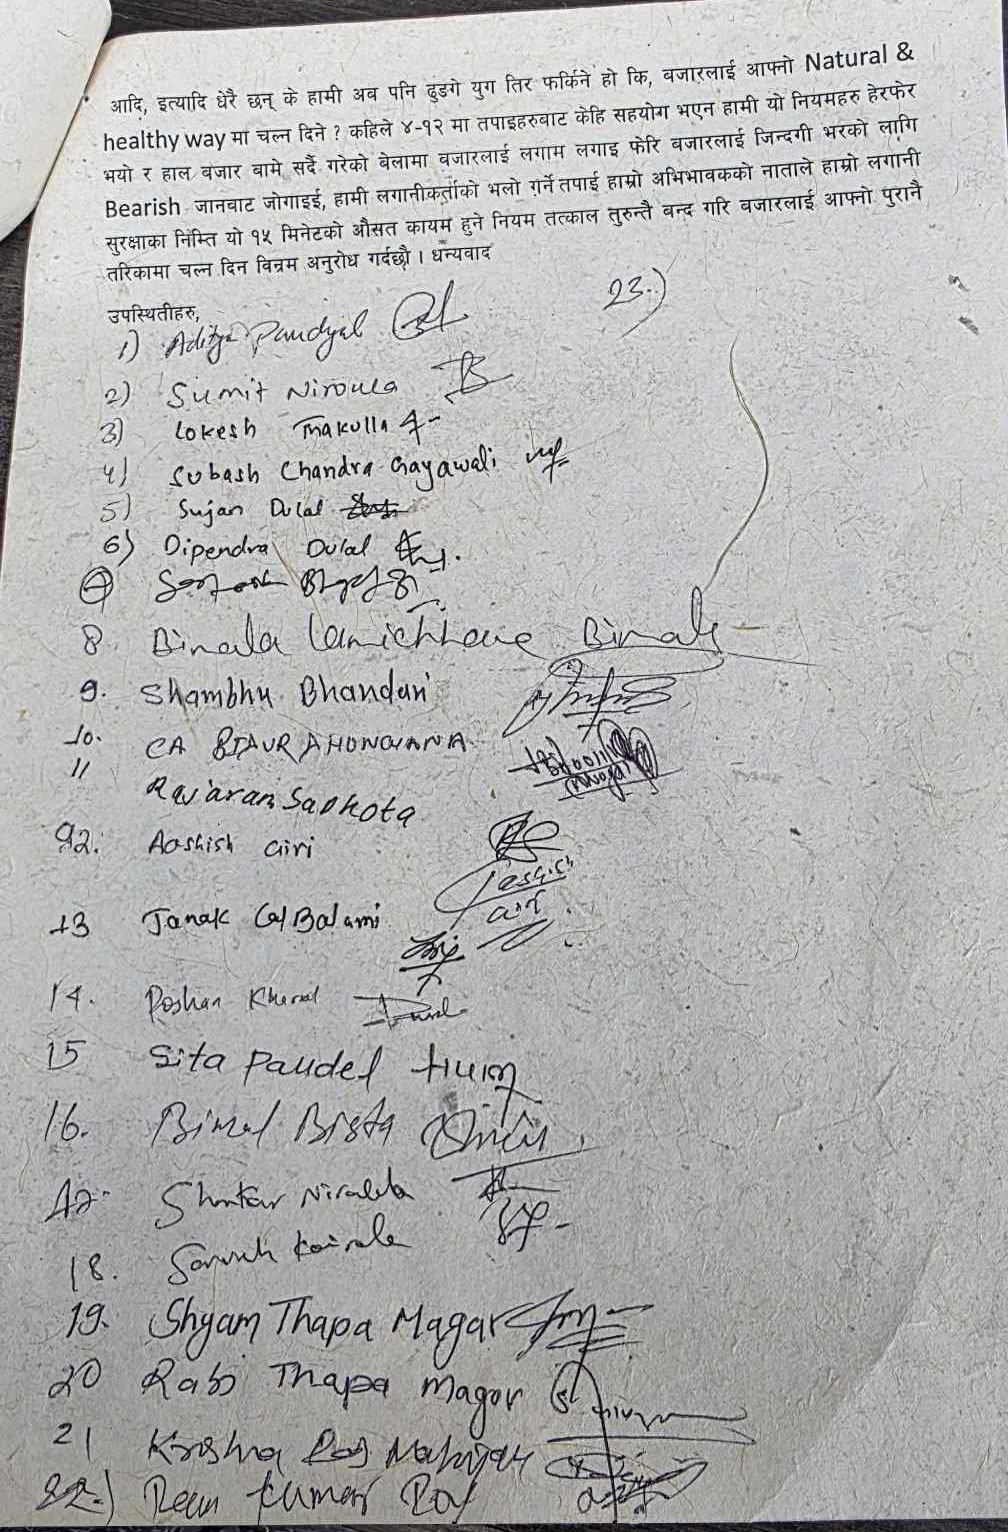 आदि, इत्यादि धेरै छन् के हामी अब पनि ढुङगे युग तिर फर्किने हो कि, बजारलाई आफ्नो Natural &
healthy way मा चल्न दिने ? कहिले ४-१२ मा तपाइहरुबाट केहि सहयोग भएन हामी यो नियमहरु हेरफेर
भयो र हाल बजार बामे सर्दै गरेको बेलामा बजारलाई लगाम लगाइ फेरि बजारलाई जिन्दगी भरको लागि
Bearish जानबाट जोगाइई, हामी लगानीकर्ताको भलो गर्ने तपाई हाम्रो अभिभावकको नाताले हाम्रो लगानी
सुरक्षाका निम्ति यो १५ मिनेटको औसत कायम हुने नियम तत्काल तुरुन्तै बन्द गरि बजारलाई आफ्नो पुरानै
तरिकामा चल्न दिन विन्रम अनुरोध गर्दछौ । धन्यवाद
उपस्थितीहरु,
23.)
1) Aditya Paudyal
2) Sumit Niroula
3) Lokesh Thakulla
4) Subash Chandra Gayawali
5) Sujan Dulal
6) Dipendra Dulal
7
8. Bimala Lamichhane Bimala
9. Shambhu Bhandari
10. CA
11 Rajaram Sapkota
12. Aashish Giri
Aashish Giri
13 Janak Lal Balami
14. Roshan Kharel
15 Sita Paudel
16. Bimal Bista
17. Shankar Niraula
18. Koirala
19. Shyam Thapa Magar
20 Rabi Thapa Magar
21 Krishna Maharjan
22.) Kumar Ray